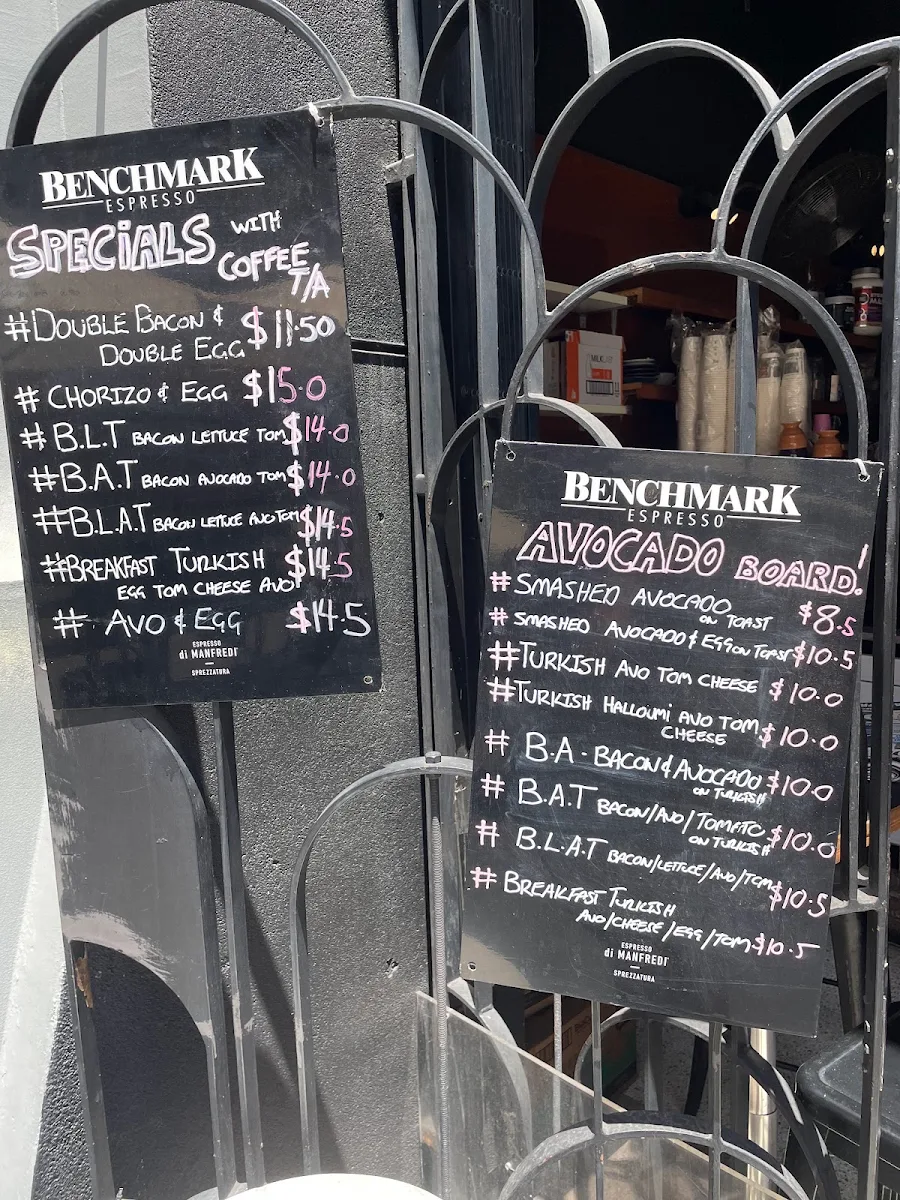 BENCHMARK
ESPRESSO
SPECIALS WITH
COFFEE
T/A
#DOUBLE BACON & $11.50
DOUBLE EGG
# CHORIZO & EGG $15.0
# B.L.T BACON LETTUCE TOM $14.0
# B.A.T BACON AVOCADO TOM $14.0
#B.L.A.T BACON LETTUCE AVO TOM $14.5
#BREAKFAST TURKISH $14.5
EGG TOM CHEESE AVO
# AVO & EGG $14.5
ESPRESSO
di MANFREDI
SPREZZATURA
BENCHMARK
ESPRESSO
AVOCADO BOARD!
# SMASHED AVOCADO $8.5
ON TOAST
# SMASHED AVOCADO & EGG ON TOAST $10.5
#TURKISH AVO TOM CHEESE $10.0
#TURKISH HALLOUMI AVO TOM $10.0
CHEESE
# B.A - BACON & AVOCADO $10.0
ON TURKISH
# B.A.T BACON/AVO/TOMATO $10.0
ON TURKISH
# B.L.A.T BACON/LETTUCE/AVO/TOM $10.5
# BREAKFAST TURKISH
AVO/CHEESE/EGG/TOM $10.5
ESPRESSO
di MANFREDI
SPREZZATURA
MILKLAB